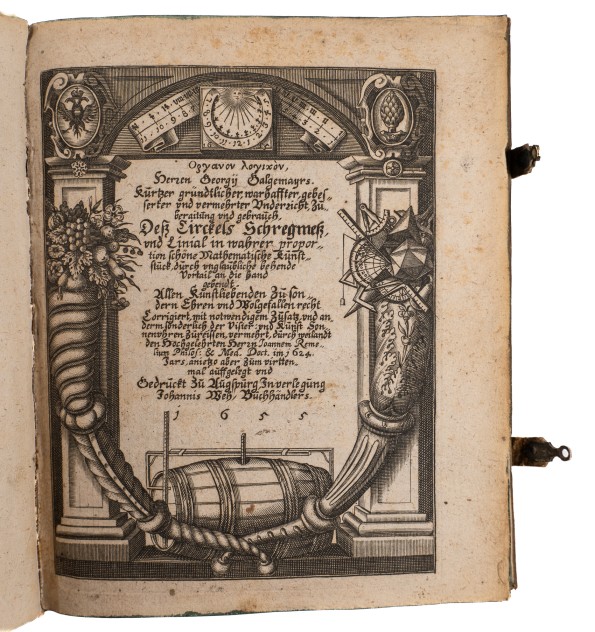 Οργανον λογικὸν,
Herren Georgij Galgemayrs.
Kürtzer gründtlicher, warhaffter, gebes-
serter vnd vermehrter Vnderricht, Zu
beraitung vnd gebrauch,
Deß Circkels Schregmeß,
vnd Linial in wahrer propor-
tion schöne Mathematische Kunst-
stück, durch vnglaubliche behende
Vortail an die hand
gebendt.
Allen Kunstliebenden Zu son-
dern Ehren vnd Wolgefallen recht
Corrigiert, mit notwendigem Zusatz, vnd an
derm sonderlich der Visier: vnd Kunst Son
nenvhren Zureissen, vermehrt, durch weilandt
den Hochgelehrten Herrn Joannem Reme
lium Philos: & Med. Doct. im 1624.
Jars, anietzo aber Zum virtten
mal auffgelegt vnd
Gedruckt Zu Augspurg In verlegung
Johannis Weh, Buchhändlers.
1 6 5 5